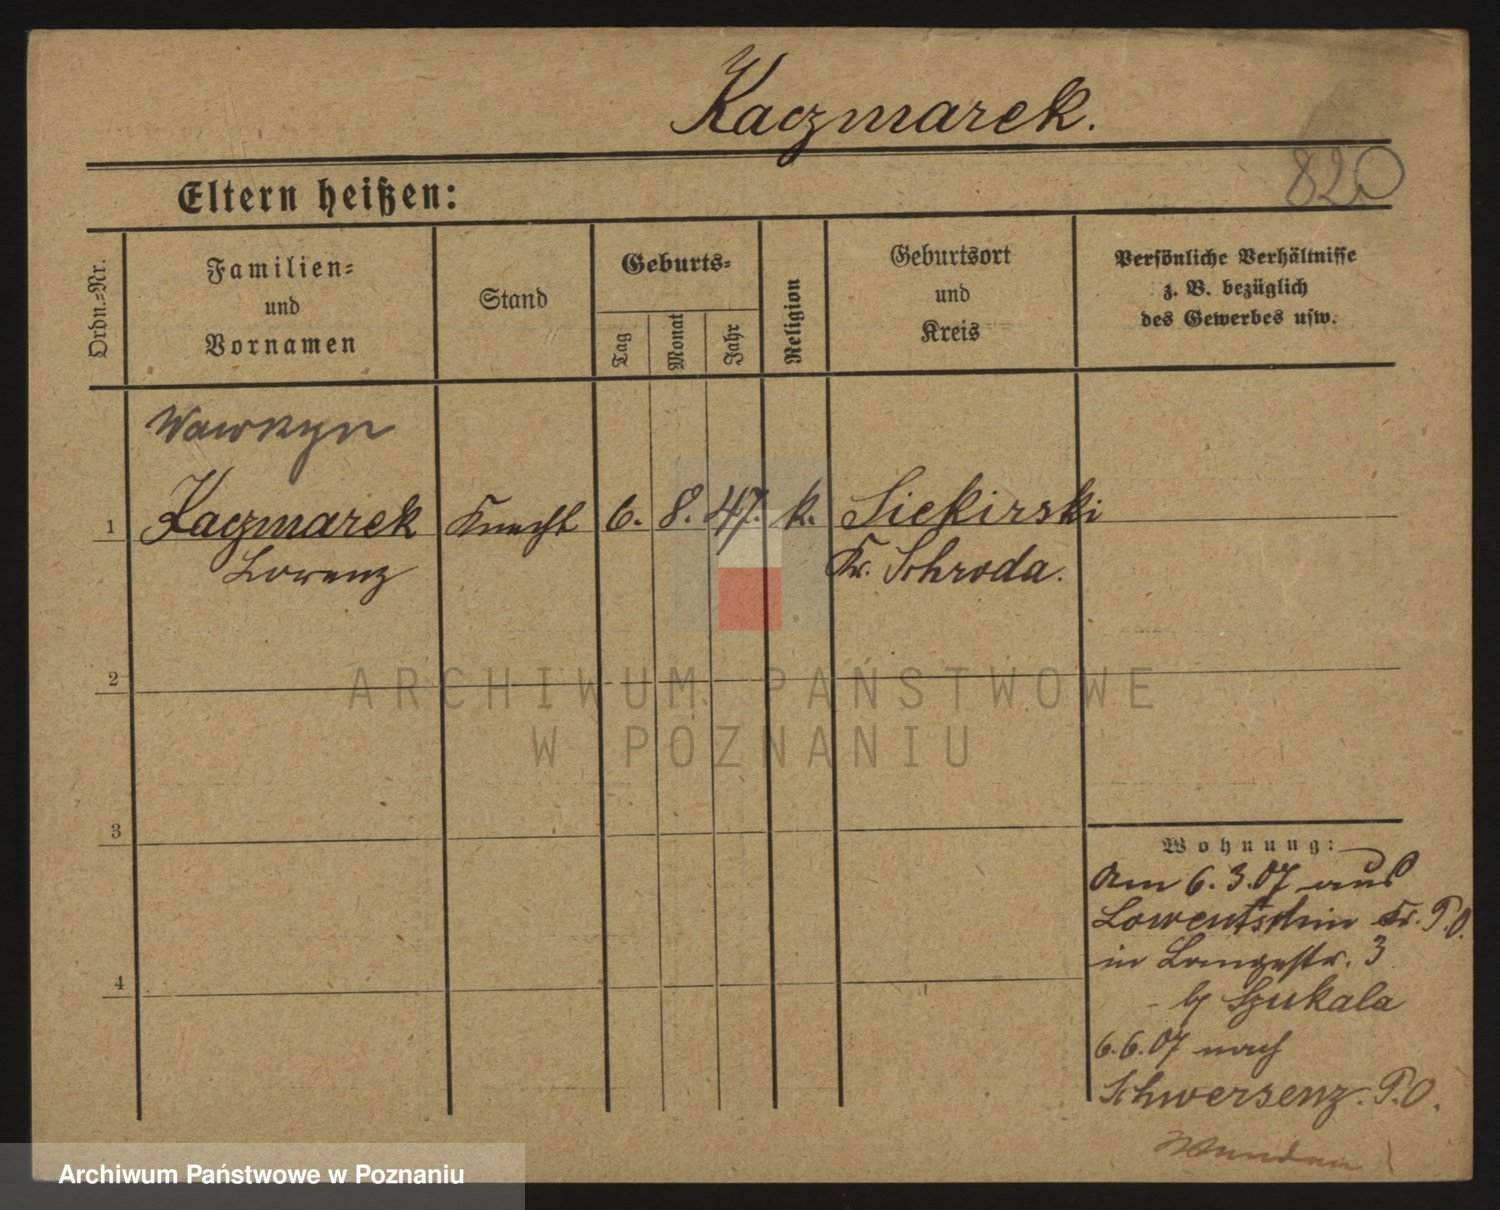 Kaczmarek.
820
Eltern heißen:
Ordn.=Nr.
Familien=
und
Vornamen
Stand
Geburts=
Tag
Monat
Jahr
Religion
Geburtsort
und
Kreis
Persönliche Verhältnisse
z. B. bezüglich
des Gewerbes usw.
Wawrzyn
1 Kaczmarek Knecht 6. 8. 47. k. Siekirski
Lorenz Kr. Schroda.
2
3
4
Wohnung:
Am 6.3.07 aus
Kr. P.O.
in Langestr. 3
b/ Szukala
6.6.07 nach
Schwersenz. P.O.
ARCHIWUM PAŃSTWOWE
W POZNANIU
Archiwum Państwowe w Poznaniu